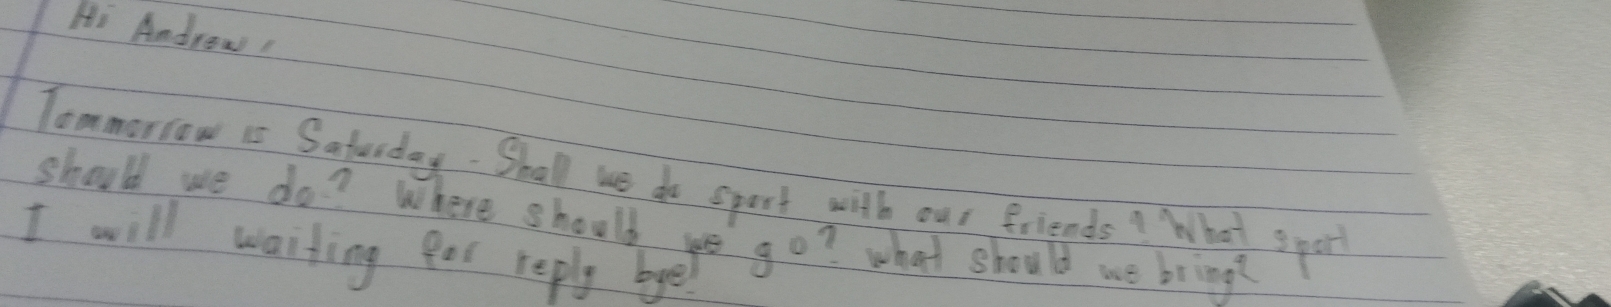 Hi Andrew,
Tommorrow is Saturday. Shall we do sport with our friends? What sport
should we do? Where should we go? what should we bring?
I will waiting for reply bye!